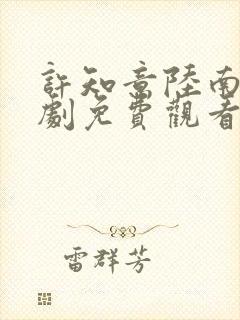 許知意陸南
劇免費觀看
雷群芳